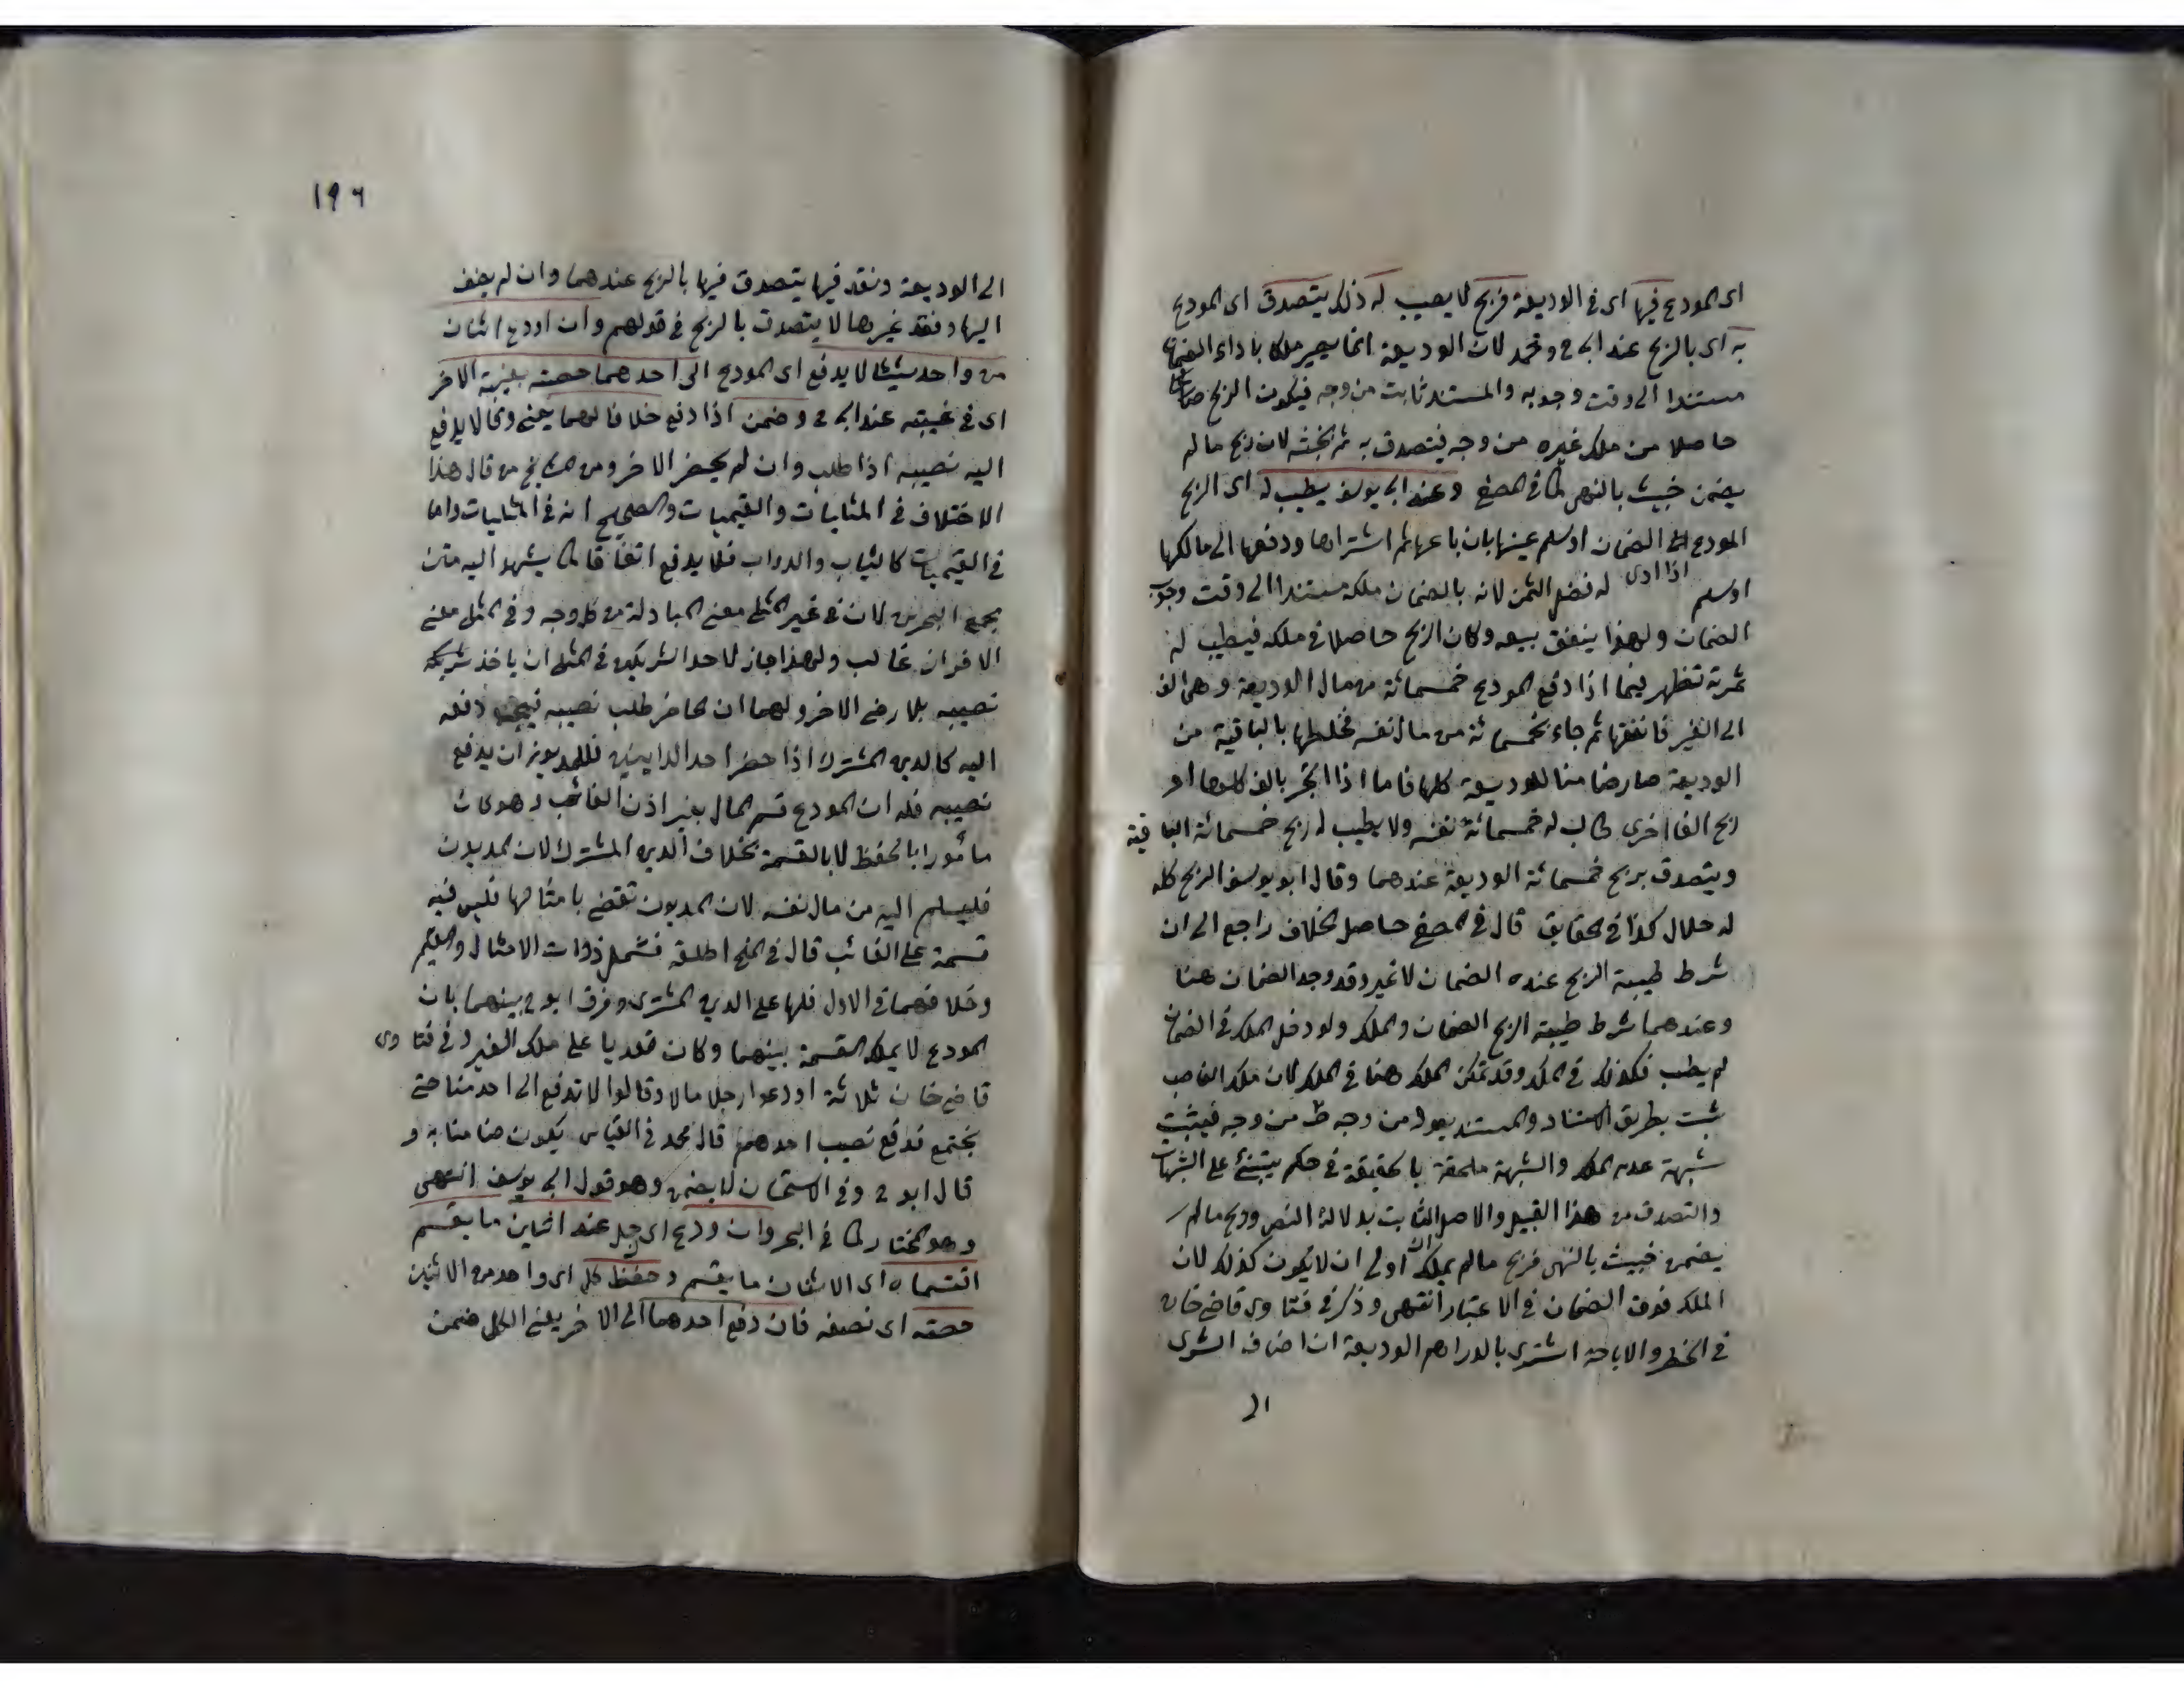 اى المودع فيها اى فى الوديعة فربح لا يصيب له ذلك يتصدق اى المودع
به اى بالربح عند ابى ح ومحمد لان الوديعة انما يصير ملكا باداء الضمان
مستندا الى وقت وجوبه والمستند ثابت من وجه فيكون الربح
حاصلا من ملك غيره من وجه فيتصدق به ثم لخبثه لان ربح ما لم
يضمن خبيث بالنهى كما فى المصفى وعند ابى يوسف يطيب له اى الربح
المودع الضمان او سلم عينها بان باعها ثم اشتراها ودفعها الى مالكها
او سلم اذا ادى له فضل الثمن لانه بالضمان ملكه مستندا الى وقت وجوب
الضمان ولهذا ينفق بيعه وكان الربح حاصلا فى ملكه فيطيب له
ثمرته تظهر فيما اذا دفع المودع خمسمائة من مال الوديعة وهى الف
الى الغير فانفقها ثم جاء بخمسمائة من مال نفسه فخلطها بالباقية من
الوديعة صار ضامنا للوديعة كلها فاما اذا اتجر بالف كلوها او
ربح الفا اخرى طاب له خمسمائة نفسه ولا يطيب له ربح خمسمائة الباقية
ويتصدق بربح خمسمائة الوديعة عندهما وقال ابو يوسف الربح كله
له حلال كذا فى الحقايق قال فى المصفى حاصل الخلاف راجع الى ان
شرط طيبة الربح عنده الضمان لا غير وقد وجد الضمان هنا
وعندهما شرط طيبة الربح الضمان والملك ولو دخل الملك فى الضمان
لم يطب فكذلك فى الملك وقد تمكن الملك هنا فى الملك لان ملك الغاصب
ثبت بطريق الاستناد والمستند يعود من وجه من وجه فيثبت
شبهة عدم الملك والشبهة ملحقة بالحقيقة فى حكم يبتنئ على الشبهات
والتصدق من هذا القبيل والاصل الثابت بدلالة النص وربح ما لم
يضمن خبيث بالنهى فربح ما لم يملك اولى ان لا يكون كذلك لان
الملك فوق الضمان فى الاعتبار انتهى وذكر فى فتاوى قاضى خان
فى الحظر والاباحة اشترى بالدراهم الوديعة ان اضاف الشرى
الى
١٩٦
الى الوديعة ونقد فيها يتصدق فيها بالربح عندهما وان لم يضف
اليها ونقد غيرها لا يتصدق بالربح فى قولهم وان اودع اثنان
من واحد شيئا لا يدفع اى المودع الى احدهما حصته بغيبة الاخر
اى فى غيبته عند ابى ح وضمن اذا دفع خلافا لهما يعنى وقالا يدفع
اليه نصيبه اذا طلب وان لم يحضر الاخر ومن المشايخ من قال هذا
الاختلاف فى المثليات والقيميات والصحيح انه فى المثليات واما
فى القيميات كالثياب والدواب فلا يدفع اتفاقا كما يشهد اليه متن
مجمع البحرين لان فى غير المثلى معنى المبادلة من كل وجه وفى المثلى معنى
الافراز غالب ولهذا جاز لاحد الشريكين فى المثلى ان ياخذ شريكه
نصيبه بلا رضى الاخر ولهما ان الحاضر طلب نصيبه دفعه
اليه كالدين المشترك اذا حضر احد الداينين فللمديون ان يدفع
نصيبه فله ان المودع قسم المال بغير اذن الغائب وهو كان
مأمورا بالحفظ لا بالقسمة بخلاف الدين المشترك لان المديون
فليسلم اليه من مال نفسه لان المديون تقضى بامثالها فليس فيه
قسمة على الغائب قال فى المنح اطلقه فشمل ذوات الامثال والقيم
وخلافهما فى الاول قلها على الدين المشترى وفرق ابو ح بينهما بان
المودع لا يملك القسمة بينهما وكان تعديا على ملك الغير وفى فتاوى
قاضى خان ثلاثة اودعوا رجلا مالا وقالوا لا تدفع الى احد منا حتى
يجتمع فدفع نصيب احدهم قال محمد فى القياس يكون ضامنا به و
قال ابو ح وفى الاستحسان لا يضمن وهو قول ابى يوسف انتهى
وهو المختار كما فى البحر وان ودع اى رجل عند اثنين ما يقسم
اقتسماه اى الاثنان ما يقسم وحفظ كل اى واحد من الاثنين
حصته اى نصفه فان دفع احدهما الى الاخر يعنى الكل ضمن